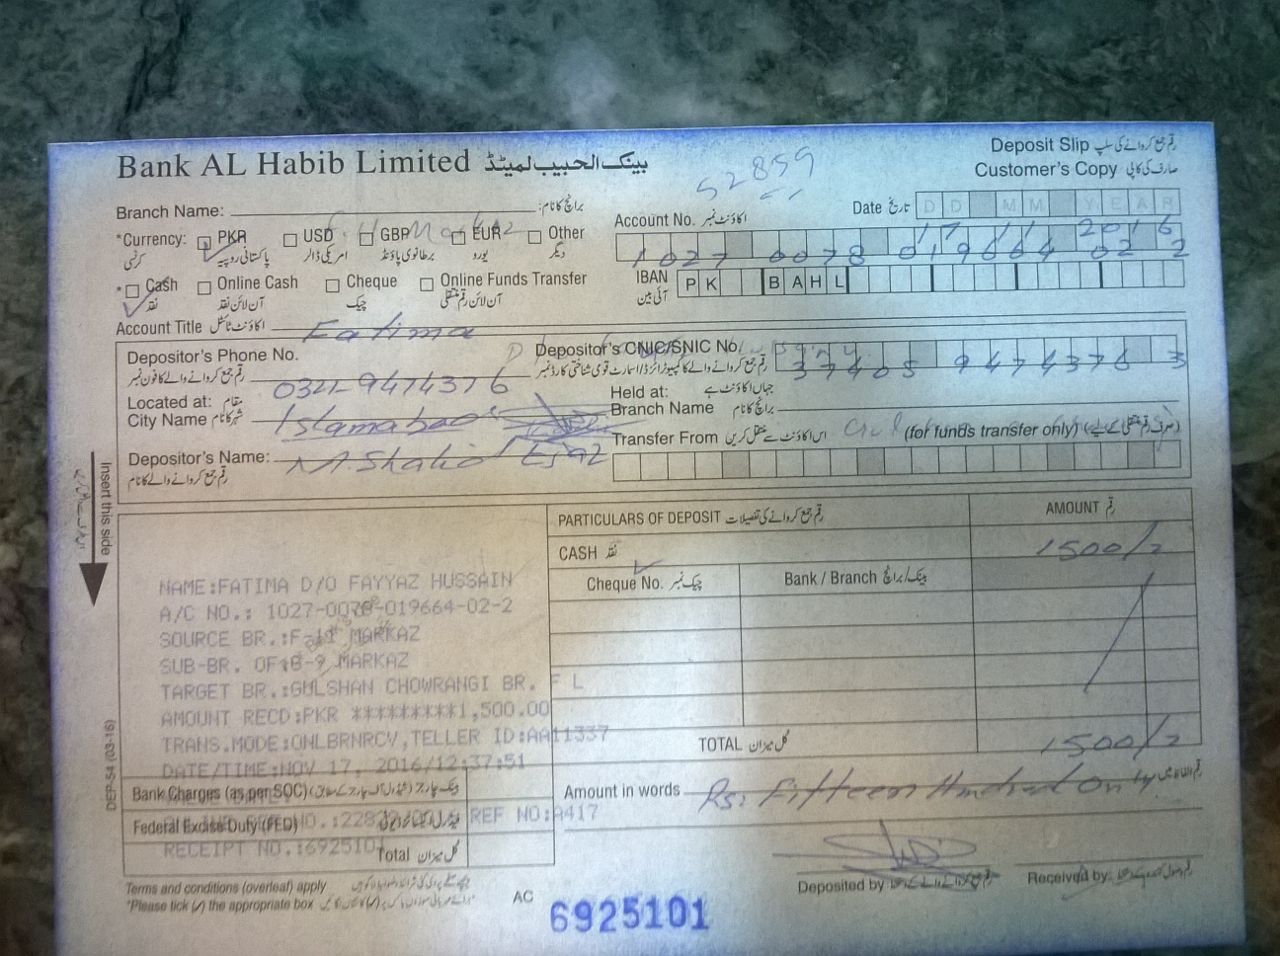 Bank AL Habib Limited بینک الحبیب لمیٹڈ
Deposit Slip رقم جمع کروانے کی سلپ
Customer's Copy صارف کی کاپی
52859
Branch Name: برانچ کا نام:
Date تاریخ DD MM YEAR
17 11 2016
Account No. اکاؤنٹ نمبر
1027 0078 019664 02 2
*Currency: PKR USD GBP EUR Other
کرنسی پاکستانی روپیہ امریکی ڈالر برطانوی پاؤنڈ یورو دیگر
IBAN PK BAHL
آئی بین
* Cash Online Cash Cheque Online Funds Transfer
نقد آن لائن نقد چیک آن لائن رقم منتقلی
Account Title اکاؤنٹ ٹائٹل Fatima
Depositor's Phone No. 0321-9474376
رقم جمع کروانے والے کا فون نمبر
Depositor's CNIC/SNIC No. 37405 9474376 3
Located at: مقام
City Name شہر کا نام Islamabad
Held at: جہاں اکاؤنٹ ہے
Branch Name برانچ کا نام
Transfer From اس اکاؤنٹ سے منتقل کریں (for funds transfer only)
Depositor's Name: M. Shahid Ejaz
رقم جمع کروانے والے کا نام
Insert this side
PARTICULARS OF DEPOSIT رقم جمع کروانے کی تفصیلات
AMOUNT رقم
CASH نقد 1500/=
Cheque No. چیک نمبر Bank / Branch بینک/برانچ
NAME:FATIMA D/O FAYYAZ HUSSAIN
A/C NO.: 1027-0078-019664-02-2
SOURCE BR.:F-11 MARKAZ
SUB-BR. OF:G-9 MARKAZ
TARGET BR.:GULSHAN CHOWRANGI BR. F L
AMOUNT RECD:PKR *********1,500.00
TRANS.MODE:ONLBRNRCV,TELLER ID:AA11337
DATE/TIME:NOV 17, 2016/12:37:51
REF NO:A417
RECEIPT NO.:6925101
TOTAL کل میزان 1500/=
Bank Charges (as per SOC)
Federal Excise Duty (FED)
Total کل میزان
Amount in words Rs: Fifteen Hundred Only.
Deposited by
Received by
Terms and conditions (overleaf) apply
*Please tick (✓) the appropriate box
AC 6925101
DEP-54 (03-16)